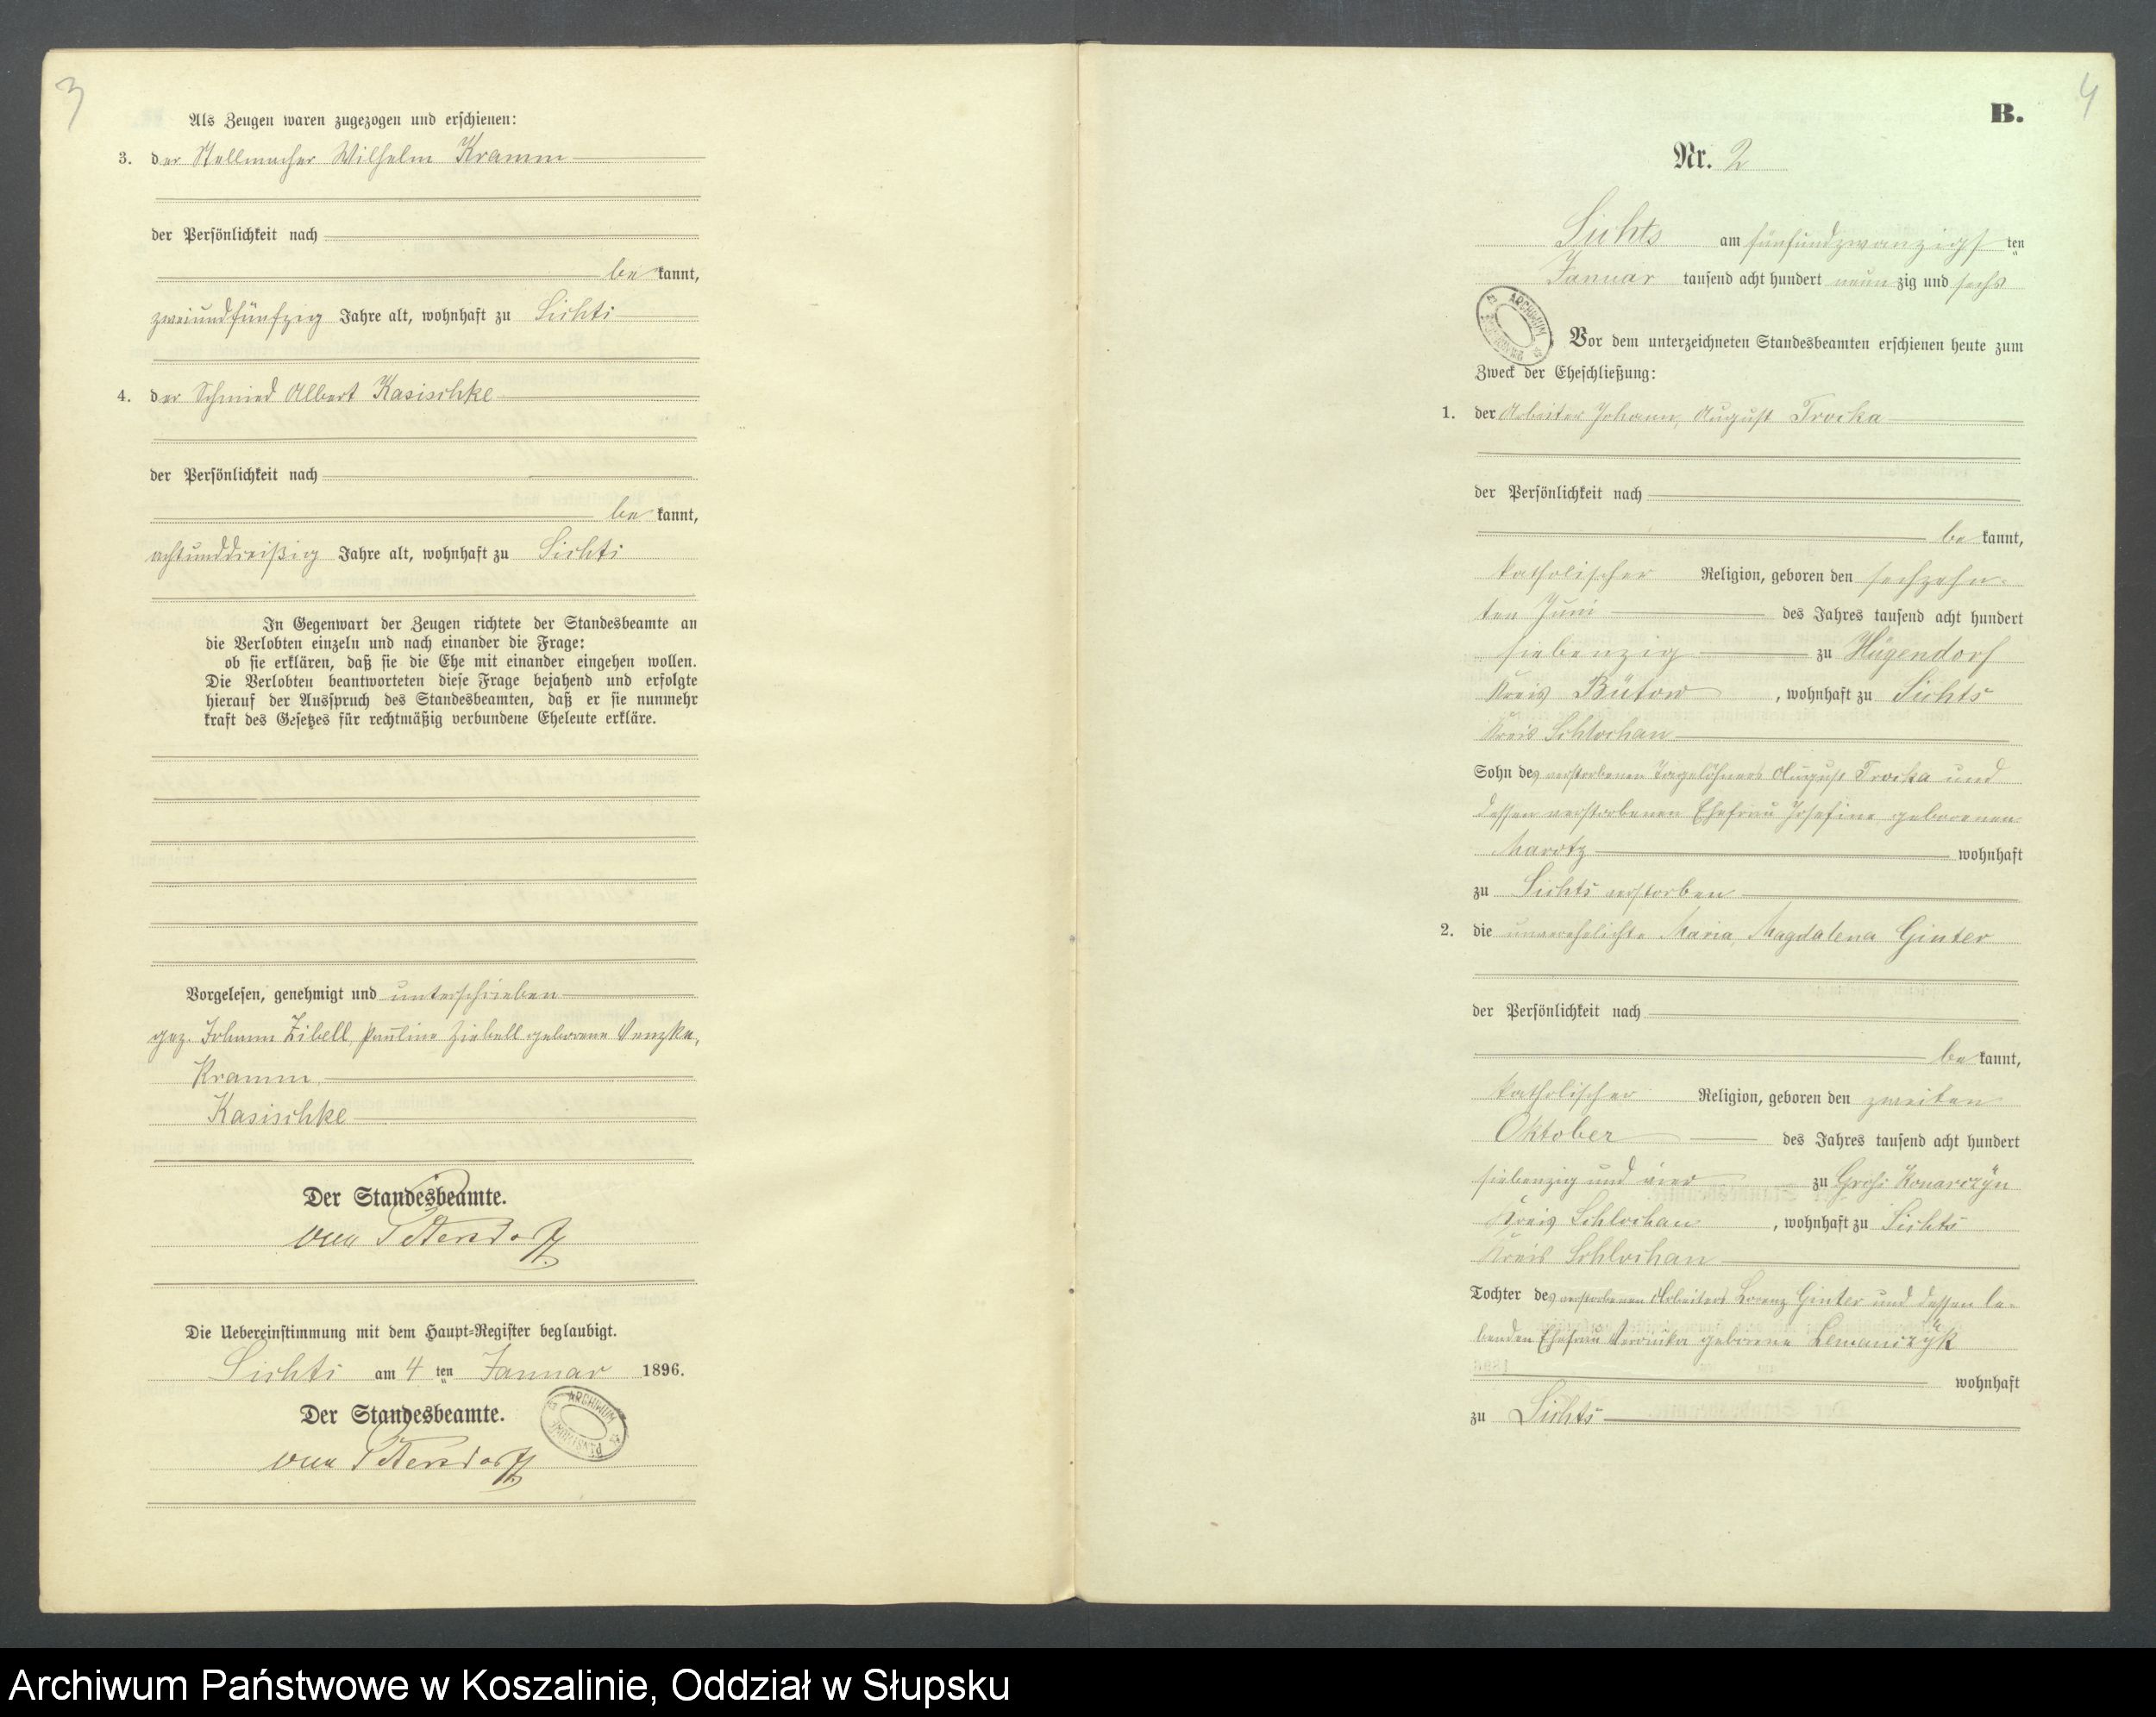 3
Als Zeugen waren zugezogen und erschienen:
3. der Stellmacher Wilhelm Kramm
der Persönlichkeit nach
be kannt,
zweiundfünfzig Jahre alt, wohnhaft zu Sichts
4. der Schmied Albert Kasischke
der Persönlichkeit nach
be kannt,
achtunddreißig Jahre alt, wohnhaft zu Sichts
In Gegenwart der Zeugen richtete der Standesbeamte an
die Verlobten einzeln und nach einander die Frage:
ob sie erklären, daß sie die Ehe mit einander eingehen wollen.
Die Verlobten beantworteten diese Frage bejahend und erfolgte
hierauf der Ausspruch des Standesbeamten, daß er sie nunmehr
kraft des Gesetzes für rechtmäßig verbundene Eheleute erkläre.
Vorgelesen, genehmigt und unterschrieben
gez. Johann Zibell, Pauline Ziebell geborene Venzke,
Kramm
Kasischke
Der Standesbeamte.
von Petersdorff
Die Uebereinstimmung mit dem Haupt-Register beglaubigt.
Sichts am 4 ten Januar 1896.
Der Standesbeamte.
von Petersdorff
ARCHIWUM
4
B.
Nr. 2
Sichts am fünfundzwanzigst ten
Januar tausend acht hundert neun zig und sechs
ARCHIWUM
Vor dem unterzeichneten Standesbeamten erschienen heute zum
Zweck der Eheschließung:
1. der Arbeiter Johann, August Trocka
der Persönlichkeit nach
be kannt,
katholischer Religion, geboren den sechzehn-
ten Juni des Jahres tausend acht hundert
siebenzig zu Hügendorf
Kreis Bütow, wohnhaft zu Sichts
Kreis Schlochau
Sohn des verstorbenen Tagelöhners August Trocka und
dessen verstorbenen Ehefrau Josefine geborenen
Marotz wohnhaft
zu Sichts verstorben
2. die unverehelichte Maria, Magdalena Ginter
der Persönlichkeit nach
be kannt,
katholischer Religion, geboren den zweiten
Oktober des Jahres tausend acht hundert
siebenzig und vier zu Groß Konarczyn
Kreis Schlochau, wohnhaft zu Sichts
Kreis Schlochau
Tochter des verstorbenen Arbeiters Lorenz Ginter und dessen le-
benden Ehefrau Veronika geborene Lemanczyk
wohnhaft
zu Sichts
Archiwum Państwowe w Koszalinie, Oddział w Słupsku